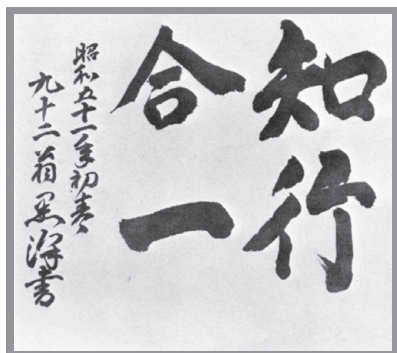 知行
合一
昭和五十一年初春
九十二翁墨渓書